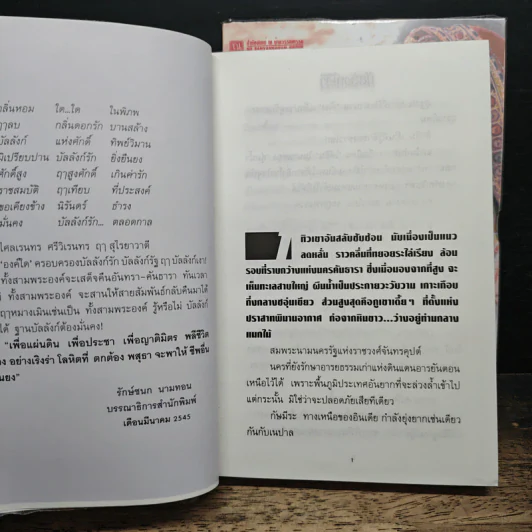 กลิ่นหอม ใด...ใด ในพิภพ
ฤๅลบ กลิ่นดอกรัก บานสล้าง
บัลลังก์ แห่งศักดิ์ ทิพย์วิมาน
มิเปรียบปาน บัลลังก์รัก ยิ่งยืนยง
ศักดิ์สูง ฤๅสูงศักดิ์ เกินค่ารัก
ราชสมบัติ ฤๅเทียบ ที่ประสงค์
ขอเคียงข้าง นิรันดร์ ธำรง
มั่นคง บัลลังก์รัก... ตลอดกาล
ไศลเรนทร ศรีวิเรนทร ฤๅ สุไรยาวาตี
"องค์ใด" ครอบครองบัลลังก์รัก บัลลังก์รัฐ ฤๅ บัลลังก์เงา!
ทั้งสามพระองค์จะเสด็จคืนจันทรา-คันธารา ทันเวลา
ทั้งสามพระองค์ จะสานให้สายสัมพันธ์กลับคืนมาได้
ฤๅหมางเมินเช่นเป็น ทั้งสามพระองค์ รู้หรือไม่ บัลลังก์
ได้ ฐานบัลลังก์ต้องมั่นคง!
"เพื่อแผ่นดิน เพื่อประชา เพื่อญาติมิตร พลีชีวิต
อย่างเริงร่า โลหิตที่ ตกต้อง พสุธา จะพาให้ ชีพอื่น
ยง"
รักษ์ชนก นามทอน
บรรณาธิการสำนักพิมพ์
เดือนมีนาคม 2545
1
ทิวเขาอันสลับซับซ้อน นับเนื่องเป็นแนว
ลดหลั่น ราวคลื่นที่ทยอยระไล่เรียง ล้อม
รอบที่ราบกว้างแห่งนครคันธารา ซึ่งเมื่อมองจากที่สูง จะ
เห็นทะเลสาบใหญ่ ผืนน้ำเป็นประกายวะวับวาม เกาะเกือบ
กึ่งกลางชอุ่มเขียว ส่วนสูงสุดคือภูเขาเตี้ย ๆ ที่ตั้งแห่ง
ปราสาทพิมานอากาศ ก่อจากหินขาว...ว่างอยู่ท่ามกลาง
แมกไม้
สมพระนามนครรัฐแห่งราชวงศ์จันทรคุปต์
นครที่ยังรักษาอารยธรรมเก่าแห่งดินแดนอารยันตอน
เหนือไว้ได้ เพราะพื้นภูมิประเทศอันยากที่จะล่วงล้ำเข้าไป
แต่กระนั้น มิใช่ว่าจะปลอดภัยเสียทีเดียว
กัษมีระ ทางเหนือของอินเดีย กำลังยุ่งยากเช่นเดียว
กันกับเนปาล
1